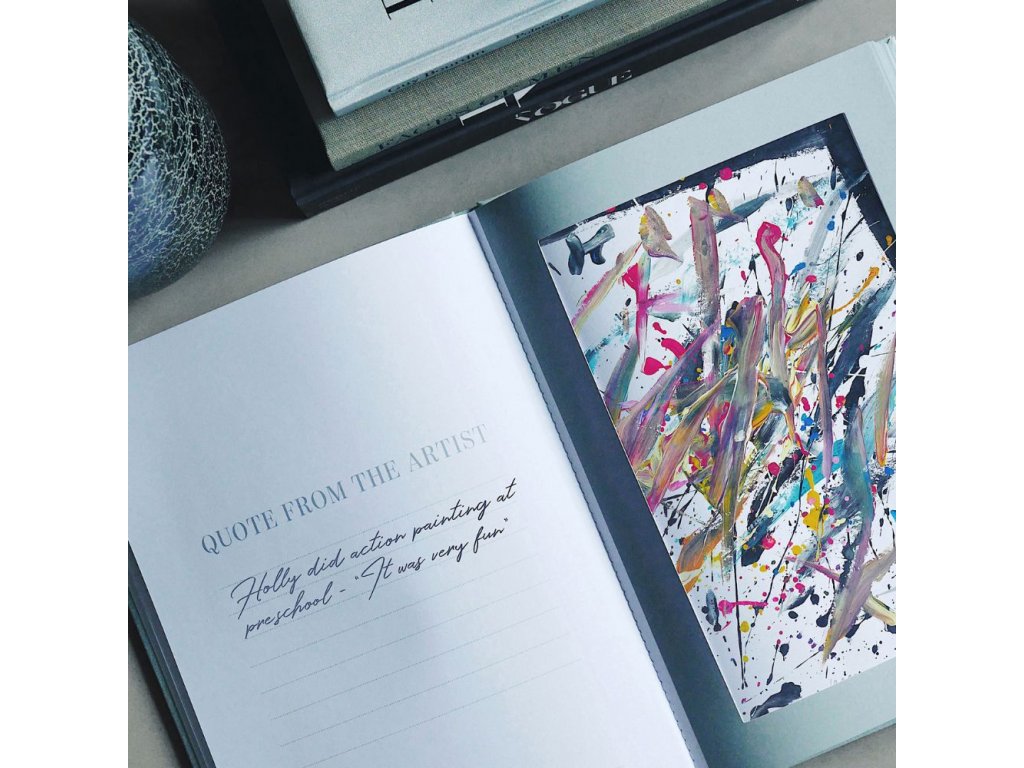 VOGUE
QUOTE FROM THE ARTIST
Holly did action painting at
preschool - "It was very fun"